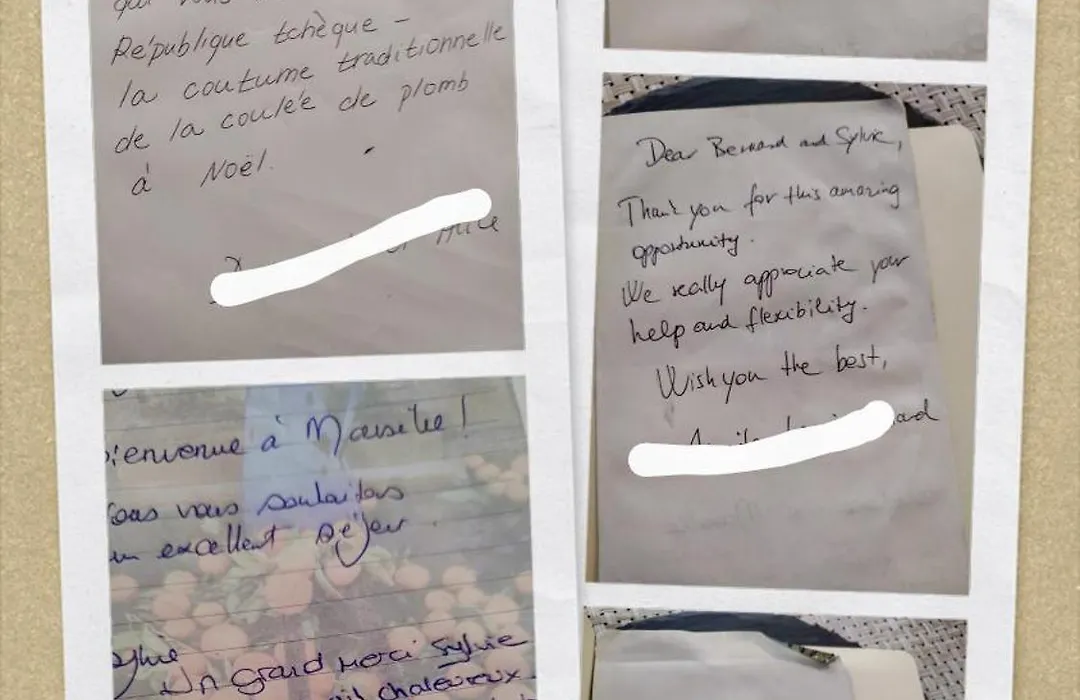 qui vous
République tchèque -
la coutume traditionnelle
de la coulée de plomb
à Noël.
Bienvenue à Marseille!
vous souhaitons
un excellent séjour.
Sylvie
Un grand merci Sylvie
chaleureux
Dear Bernard and Sylvie,
Thank you for this amazing
opportunity.
We really appreciate your
help and flexibility.
Wish you the best,